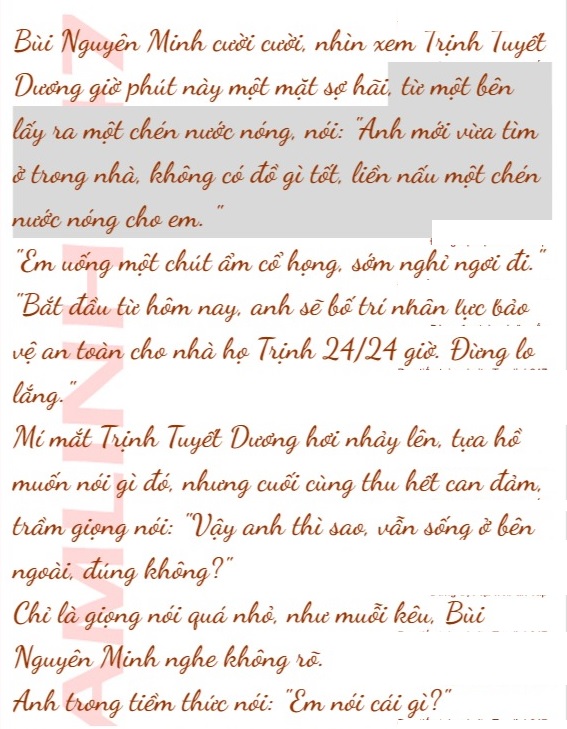 Bùi Nguyên Minh cười cười, nhìn xem Trịnh Tuyết
Dương giờ phút này một mặt sợ hãi, từ một bên
lấy ra một chén nước nóng, nói: "Anh mới vừa tìm
ở trong nhà, không có đồ gì tốt, liền nấu một chén
nước nóng cho em. "
"Em uống một chút ấm cổ họng, sớm nghỉ ngơi đi."
"Bắt đầu từ hôm nay, anh sẽ bố trí nhân lực bảo
vệ an toàn cho nhà họ Trịnh 24/24 giờ. Đừng lo
lắng."
Mí mắt Trịnh Tuyết Dương hơi nhảy lên, tựa hồ
muốn nói gì đó, nhưng cuối cùng thu hết can đảm,
trầm giọng nói: "Vậy anh thì sao, vẫn sống ở bên
ngoài, đúng không?"
Chỉ là giọng nói quá nhỏ, như muỗi kêu, Bùi
Nguyên Minh nghe không rõ.
Anh trong tiềm thức nói: "Em nói cái gì?"